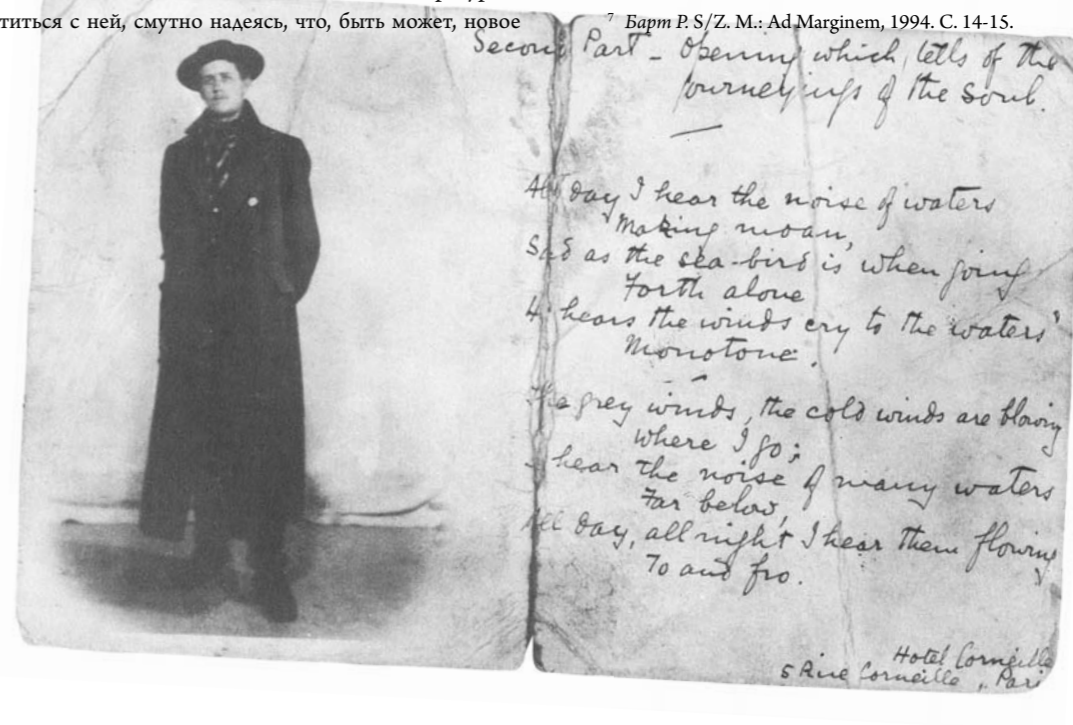 титься с ней, смутно надеясь, что, быть может, новое
⁷ Барт Р. S/Z. М.: Ad Marginem, 1994. С. 14-15.
Second Part – Opening which tells of the
journeyings of the soul.
All day I hear the noise of waters
Making moan,
Sad as the sea-bird is when going
Forth alone
He hears the winds cry to the waters'
Monotone.
The grey winds, the cold winds are blowing
Where I go;
I hear the noise of many waters
Far below,
All day, all night I hear them flowing
To and fro.
Hotel Corneille
5 Rue Corneille, Paris